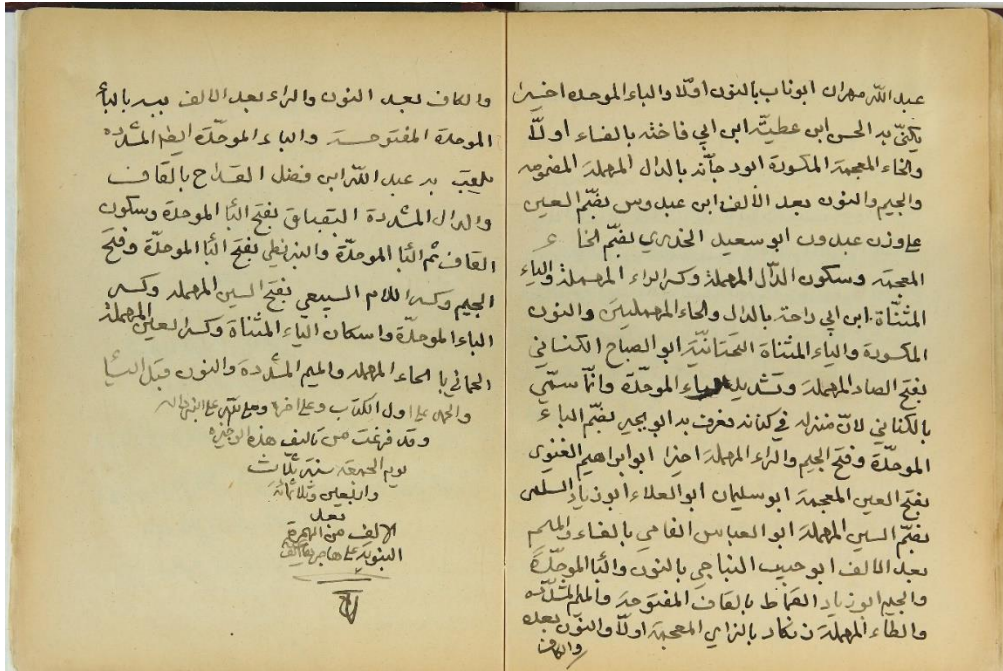 عبد الله مهران ابو ناب بالنون اولا والباء الموحده اخيرا
يكنى به الحسن ابن عطية ابن ابي فاخته بالفاء اولا
والخاء المعجمة المكسورة ابو دجانه بالدال المهملة المضمومه
والجيم والنون بعد الالف ابن عبدوس بضم العين
على وزن عبدون ابو سعيد الخدري بضم الخاء
المعجمة وسكون الدال المهملة وكسر الراء المهملة والياء
المثناة ابن ابي داحة بالدال والحاء المهملتين والنون
المكسورة والياء المثناة التحتانية ابو الصباح الكناني
بفتح الصاد المهملة وتشديد الباء الموحدة وانما سمي
بالكناني لان منزله في كنانه فعرف به ابو بجير بضم الباء
الموحدة وفتح الجيم والراء المهملة اخيرا ابو ابراهيم الغنوي
بفتح الغين المعجمة ابو سليمان ابو العلاء ابو زياد السلمي
بضم السين المهملة ابو العباس الفامي بالفاء والميم
بعد الالف ابو حبيب النباجي بالنون والبا الموحدة
والجيم ابو زياد القماط بالقاف المفتوحة والميم المشدده
والطاء المهملة زنكار بالزاي المعجمة اولا والنون بعده
والكاف
والكاف بعد النون والراء بعد الالف ببه بالباء
الموحدة المفتوحة والباء الموحدة ايضا المشدده
يلقب به عبد الله ابن فضل القداح بالقاف
والدال المشددة البقباق بفتح البا الموحدة وسكون
القاف ثم البا الموحدة والبزنطي بفتح البا الموحدة وفتح
الجيم وكسر اللام السبيعي بفتح السين المهملة وكسر
الباء الموحدة واسكان الياء المثناة وكسر العين المهملة
الحماني بالحاء المهملة والميم المشددة والنون قبل اليا
والحمد على اول الكتاب وعلى اخره وصلى الله على النبي واله
وقد فرغت من تاليف هذه الوجيزه
يوم الجمعة سنة ثلاث
واربعين وثلاثمائة
بعد
الالف من الهجرة
النبوية على هاجرها الف